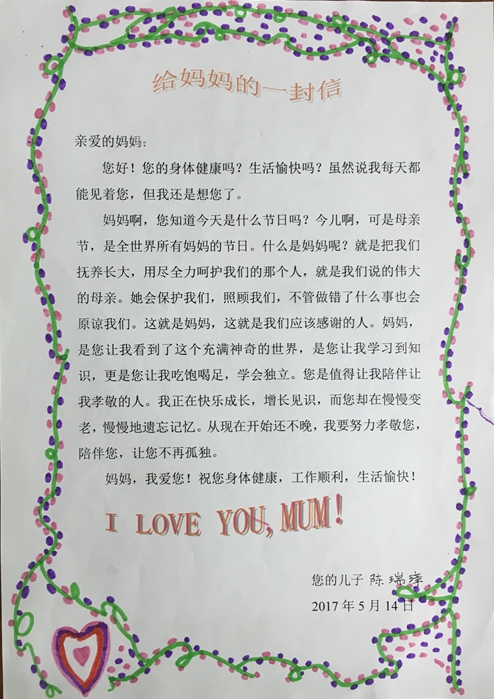 给妈妈的一封信
亲爱的妈妈：
您好！您的身体健康吗？生活愉快吗？虽然说我每天都
能见着您，但我还是想您了。
妈妈啊，您知道今天是什么节日吗？今儿啊，可是母亲
节，是全世界所有妈妈的节日。什么是妈妈呢？就是把我们
抚养长大，用尽全力呵护我们的那个人，就是我们说的伟大
的母亲。她会保护我们，照顾我们，不管做错了什么事也会
原谅我们。这就是妈妈，这就是我们应该感谢的人。妈妈，
是您让我看到了这个充满神奇的世界，是您让我学习到知
识，更是您让我吃饱喝足，学会独立。您是值得让我陪伴让
我孝敬的人。我正在快乐成长，增长见识，而您却在慢慢变
老，慢慢地遗忘记忆。从现在开始还不晚，我要努力孝敬您，
陪伴您，让您不再孤独。
妈妈，我爱您！祝您身体健康，工作顺利，生活愉快！
I LOVE YOU, MUM!
您的儿子 陈瑞
2017 年 5 月 14 日